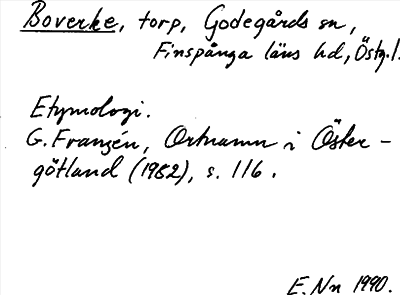 Boverke, torp, Godegårds sn,
Finspånga läns hd, Östg.l.
Etymologi.
G. Franzén, Ortnamn i Öster-
götland (1982), s. 116.
E. Nn 1990.